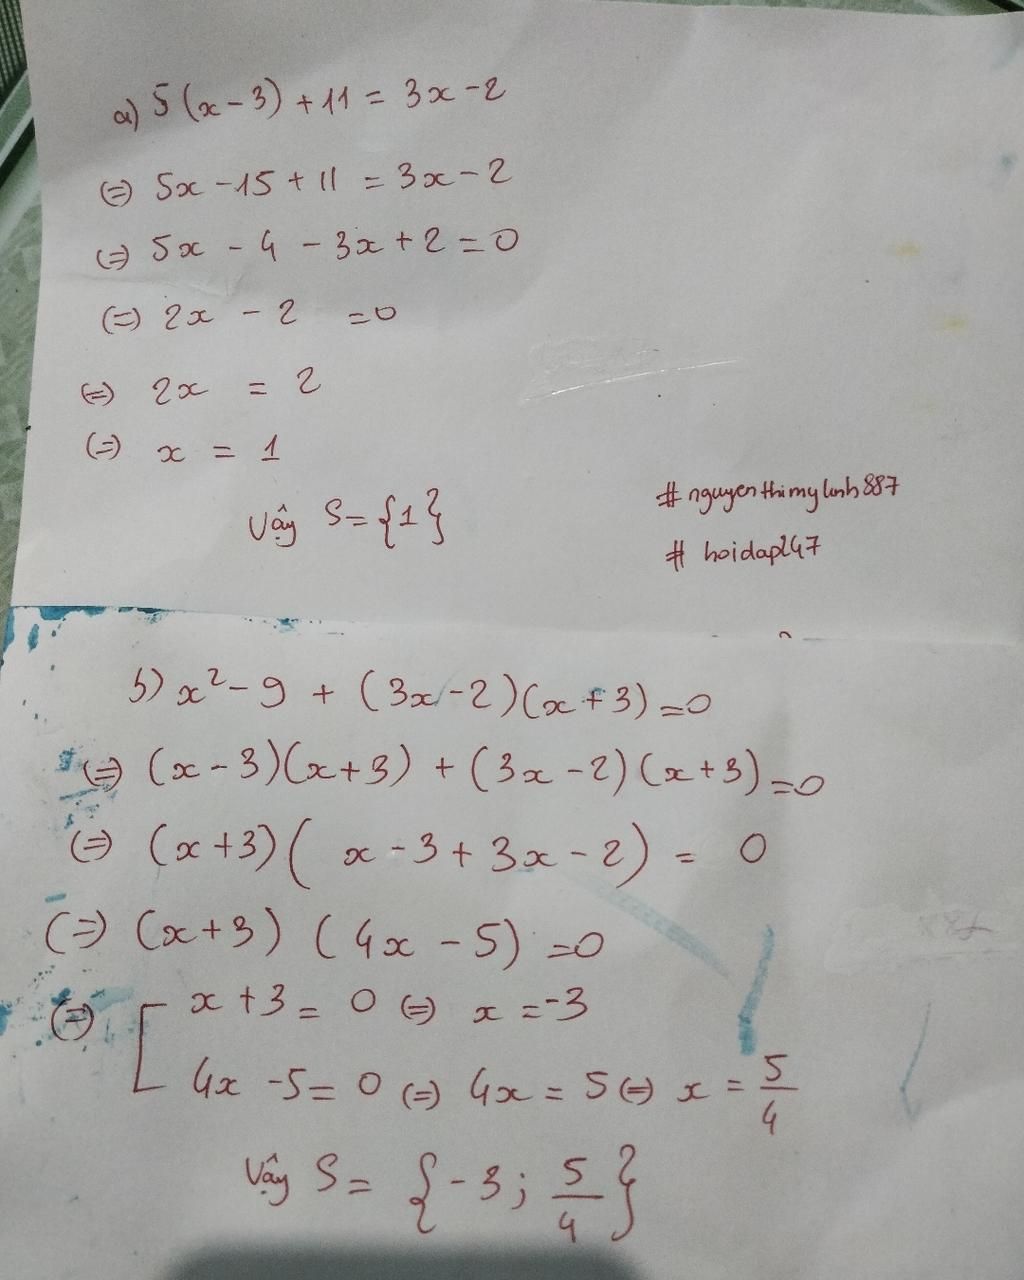 a) 5(x-3) + 11 = 3x - 2
(=) 5x - 15 + 11 = 3x - 2
(=) 5x - 4 - 3x + 2 = 0
(=) 2x - 2 = 0
(=) 2x = 2
(=) x = 1
Vậy S = {1}
# nguyenthimylinh887
# hoidap247
b) x² - 9 + (3x - 2)(x + 3) = 0
(=) (x - 3)(x + 3) + (3x - 2)(x + 3) = 0
(=) (x + 3)( x - 3 + 3x - 2) = 0
(=) (x + 3) (4x - 5) = 0
(=) [ x + 3 = 0 (=) x = -3
4x - 5 = 0 (=) 4x = 5 (=) x = 5/4
Vậy S = {-3; 5/4}